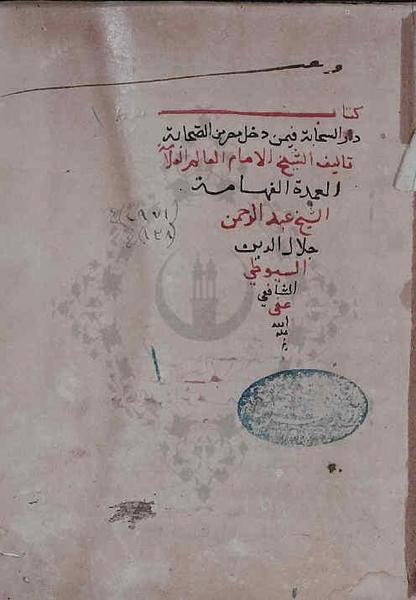 كتاب
در السحابة فيمن دخل مصر من الصحابة
تاليف الشيخ الامام العالم العلا
العمدة الفهامة
الشيخ عبد الرحمن
جلال الدين
السيوطي
الشافعي
عفى
الله
عنه
(٩٧١)ع
(١٣٨)ع